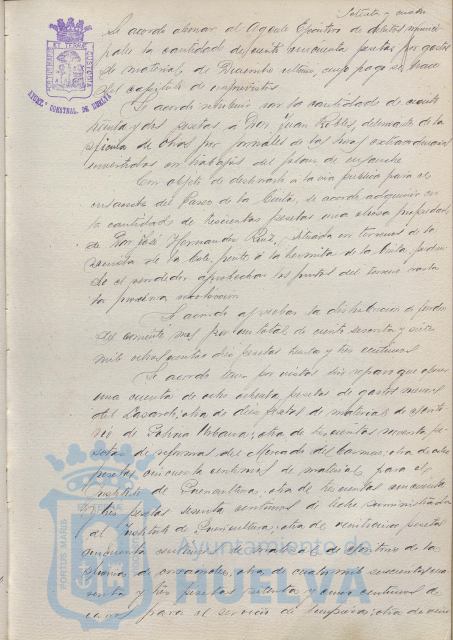 Setenta y cuatro
Se acordó abonar al Agente Ejecutivo de débitos munici-
pales la cantidad de ciento cincuenta pesetas por gastos
de material, de Diciembre último, cuyo pago se hace
del capítulo de imprevistos
Se acordó reintegrar con la cantidad de ciento
treinta y dos pesetas a Don Juan Robles, delineante de la
oficina de Obras por jornales de las horas extraordinarias
invertidas en trabajos del plano de ensanche
Con objeto de destinarla a la vía pública para el
ensanche del Paseo de la Cinta, se acordó adquirir en
la cantidad de trescientas pesetas una choza propiedad
de Don José Hernandez Ruiz, situada en terrenos de la
de la Cinta, frente á la hermita de la Cinta, pudien-
do el vendedor aprovechar los frutos del terreno hasta
la próxima
Se acordó aprobar la distribución de fondos
del corriente mes por un total de ciento sesenta y siete
mil ochocientas diez pesetas treinta y tres centimos
Se acordó tener por vistas sin reparo que oponer
una cuenta de ochenta pesetas de gastos menores
del otra de diez pesetas de material de escrito-
rio de Policia Urbana; otra de doscientas noventa pe-
setas de reformas del Mercado del Carmen; otra de ocho
pesetas cincuenta centimos de material para el
Instituto de Puericultura; otra de trescientas cincuenta
y tres pesetas sesenta centimos de leche suministrada
al Instituto de Puericultura; otra de veinticinco pesetas
cincuenta centimos de material de escritorio de la
de otra de cuatro mil seiscientas cua-
renta y tres pesetas setenta y cinco centimos de
para el servicio de limpieza; otra de
AYUNT. CONSTNAL. DE HUELVA
PORTUS MARIS
Ayuntamiento de
HUELVA